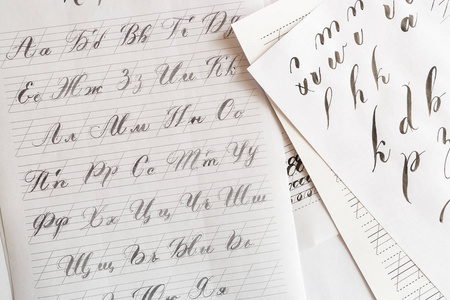 Аа Бб Вв Гг Дд
Ее Жж Зз Ии Кк
Лл Мм Нн Оо
Пп Рр Сс Тт Уу
Фф Хх Цц Чч Шш
Щщ Ъъ Ыы Ьь
Юю Яя
m m
u r
l h k
d b
k p